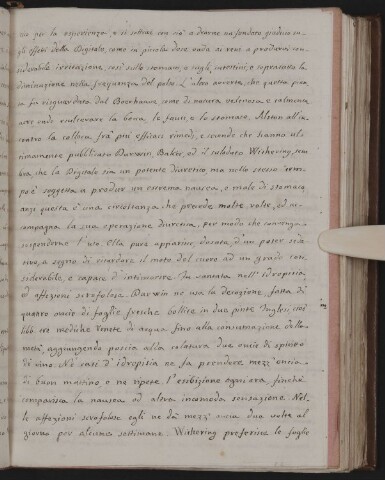 più per la esperienza, e si sottrae con ciò a darne un fondato giudizio su
gli effetti della Digitale, come in piccola dose vada ai vene a produrvi con-
siderabile irritazione, così sullo stomaco, e negli intestini, e soprattutto la
diminuzione nella frequenza del polso. L'altro avverte, che questa pian-
ta fu risguardata dal Boerhaave come di natura velenosa, e talmente
acre onde esulcerare la bocca, le fauci, e lo stomaco. Alston all'in-
contro la colloca fra più efficaci rimedj, e secondo che hanno ul-
timamente pubblicato Darwin, Baker, ed il celebrato Withering, sem-
bra che la Digitale sia un potente diuretico, ma nello stesso tem-
po è soggetta a produr un' estrema nausea, e male di stomaco,
anzi questa è una circostanza che precede molte volte, ed ac-
compagna la sua operazione diuretica, per modo che convenga
sospenderne l'uso. Ella pure apparisce dotata d'un poter seda-
tivo, a segno di ritardare il moto del cuore ad un grado con-
siderabile, e capace d'intimorire. Fu vantata nell'idropisia,
ed affezioni scrofolose. Darwin ne usa la decozione, fatta di
quattro oncie di foglie fresche bollite in due pinte Inglesi, cioè
libb. tre mediche Venete di acqua fino alla consumazione della
metà, aggiungendo poscia alla colatura due oncie di spirito
di vino. Ne' casi d'idropisia ne fa prendere mezz'oncia
di buon mattino, e ne ripete l'esibizione ogni ora, finchè
comparisca la nausea od altra incomoda sensazione. Nel-
le affezioni scrofolose egli ne dà mezz'oncia due volte al
giorno per alcune settimane. Withering preferisce le foglie